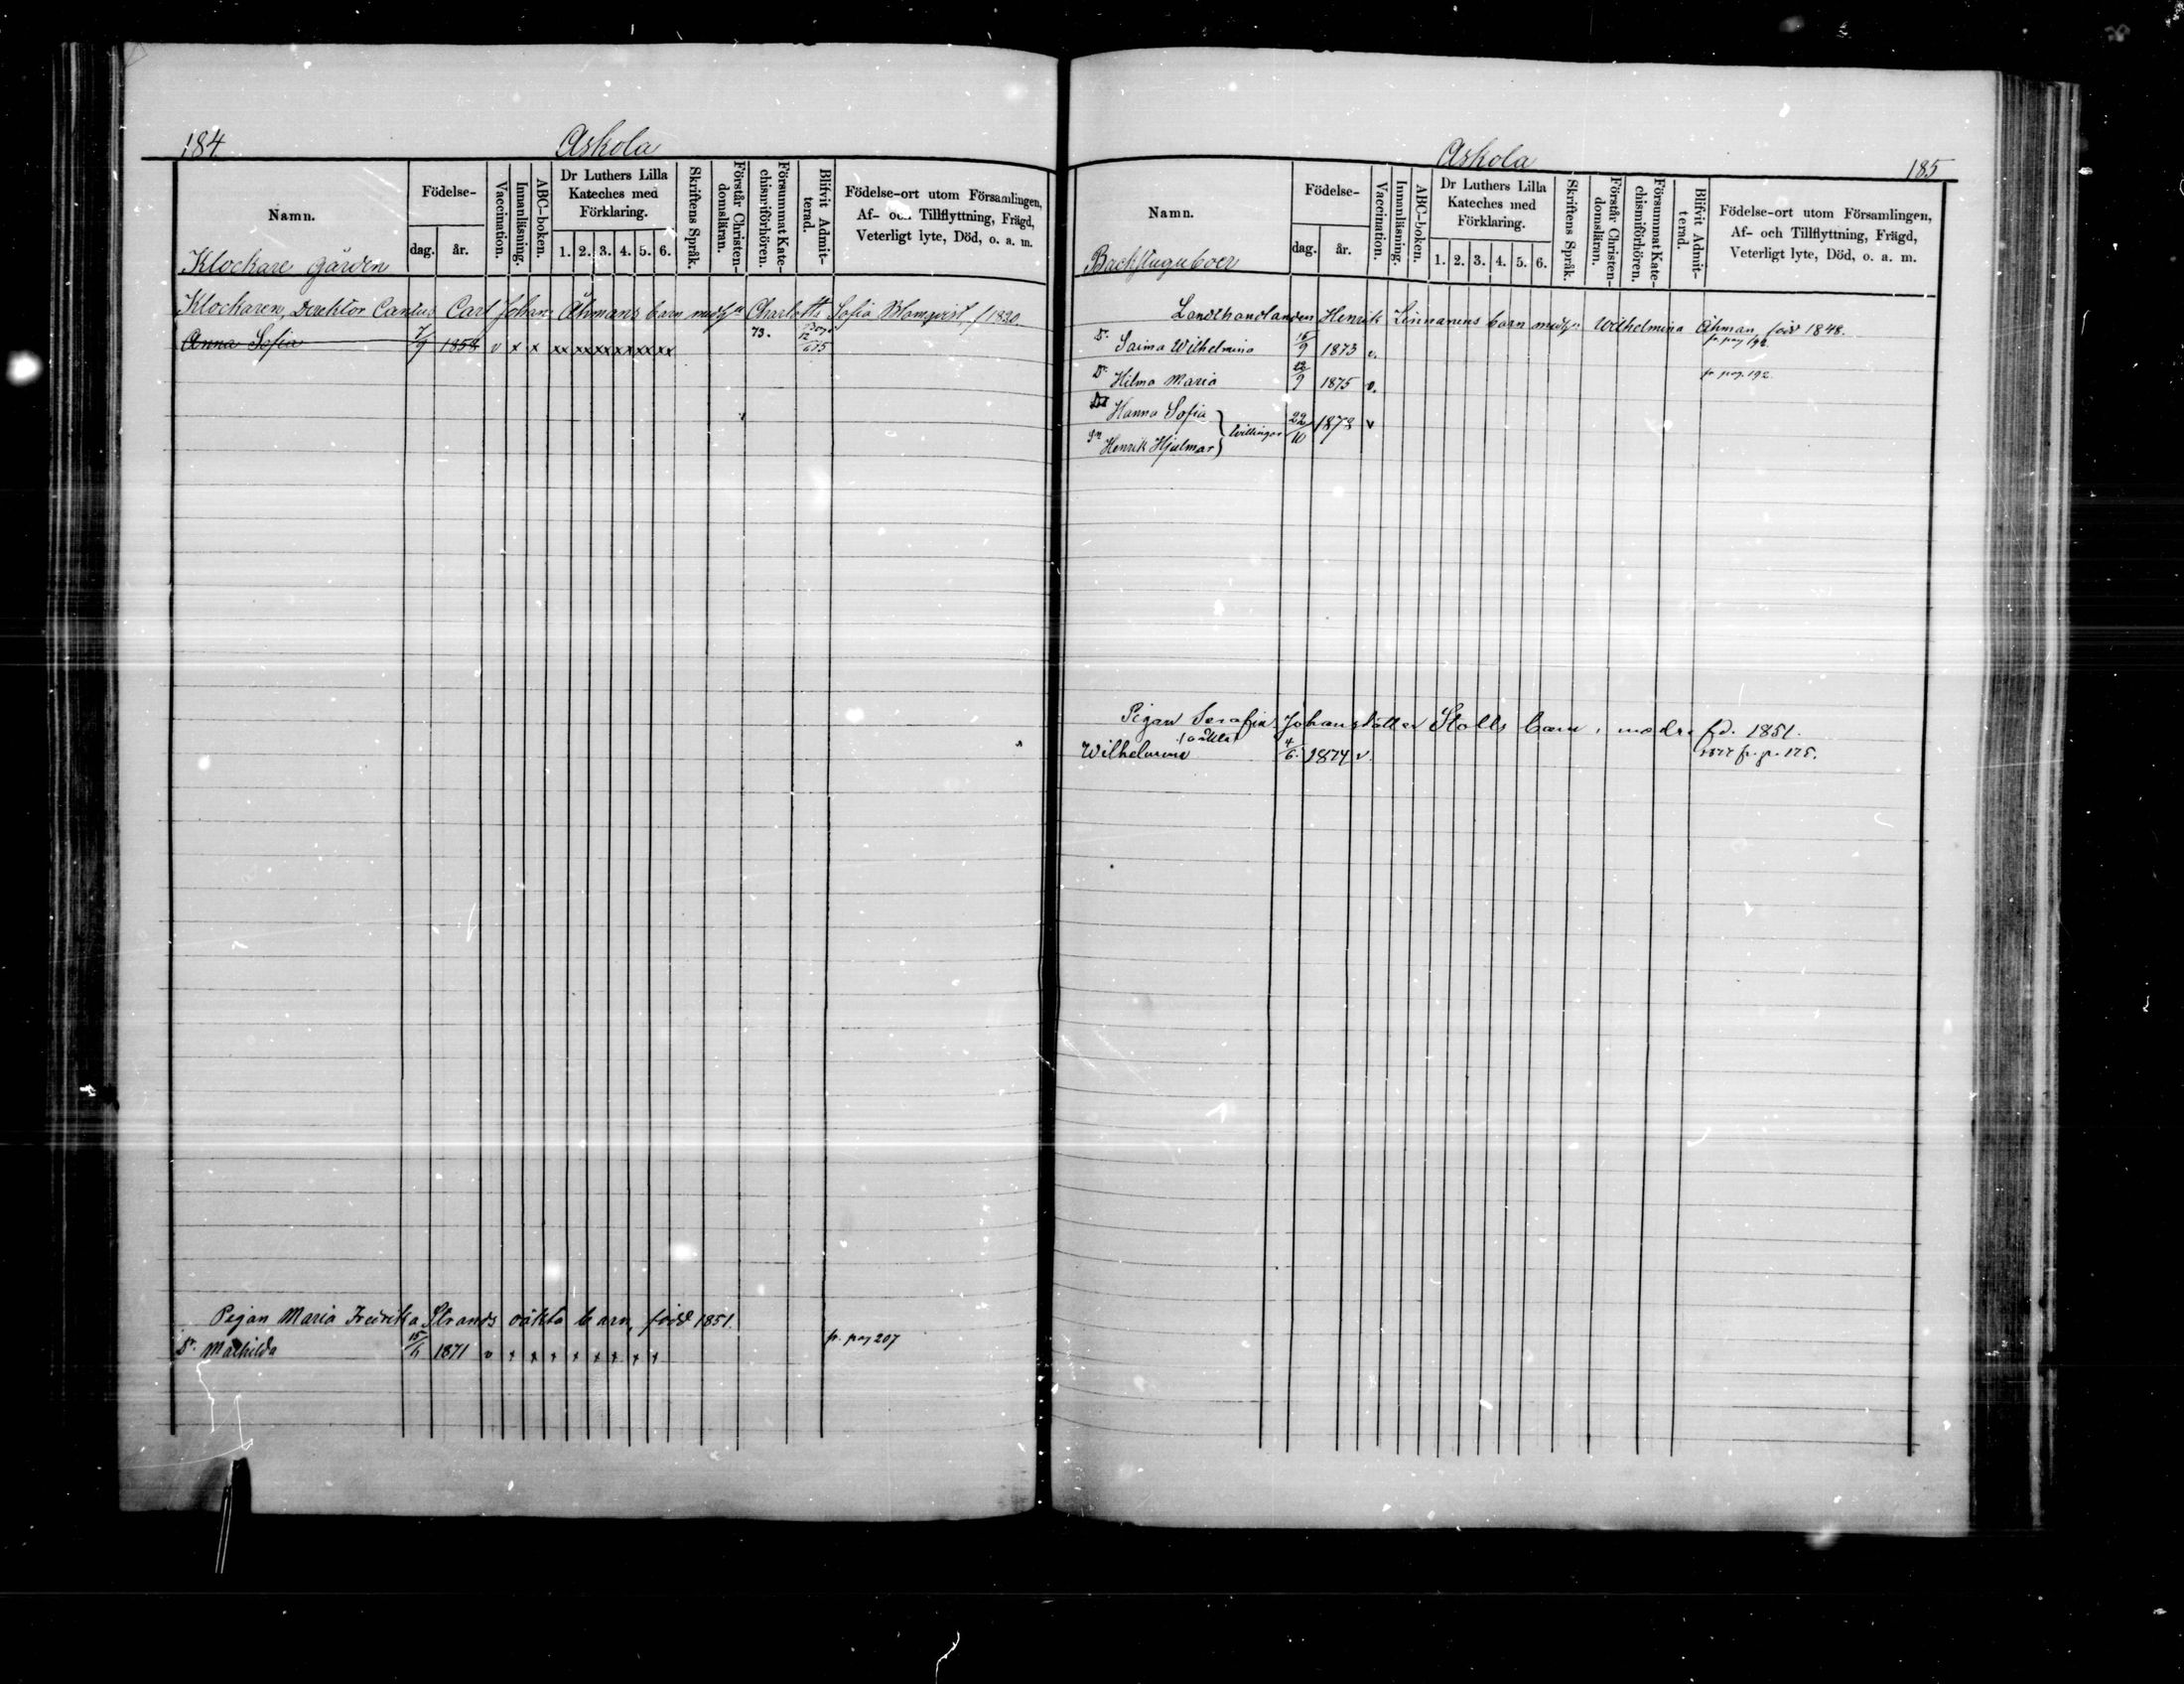 184.
Askola
Namn.
Födelse-
dag.
år.
Vaccination.
Innanläsning.
ABC-boken.
Dr Luthers Lilla Kateches med Förklaring.
1. 2. 3. 4. 5. 6.
Skriftens Språk.
Förstår Christen-domsläran.
Försummat Kate-chismiförhören.
Blifvit Admit-terad.
Födelse-ort utom Församlingen,
Af- och Tillflyttning, Frägd,
Veterligt lyte, Död, o. a. m.
Klockare gården
Klockaren, Direktör Cantus Carl Johan Åhmans barn med Charlotta Sofia Blomqvist f 1820.
Anna Sofia 7/9 1858 v x x xx xx xx xx xx xx 73.
Pigan Maria Fredrika Strands oäkta barn, född 1851.
Dr. Mathilda 15/6 1871 v x x x x x x x x fr. pag 207
Askola
185
Namn.
Födelse-
dag.
år.
Vaccination.
Innanläsning.
ABC-boken.
Dr Luthers Lilla Kateches med Förklaring.
1. 2. 3. 4. 5. 6.
Skriftens Språk.
Förstår Christen-domsläran.
Försummat Kate-chismiförhören.
Blifvit Admit-terad.
Födelse-ort utom Församlingen,
Af- och Tillflyttning, Frägd,
Veterligt lyte, Död, o. a. m.
Backstuguboer
Landthandlanden Henrik Linnanens barn med Wilhelmina Åhman, född 1848.
Dr. Saima Wilhelmina 15/9 1873 v. fr. pag 192.
Dr. Hilma Maria 1875 v. fr. pag. 192.
Hanna Sofia 22/10 1878 v
Henrik Hjalmar } Tvillingar
Pigan Serafia Johansdotter Stolls barn, modren fd. 1851.
Wilhelmina (oäkta) 4/6. 1874 v. 1877 fr. p. 175.